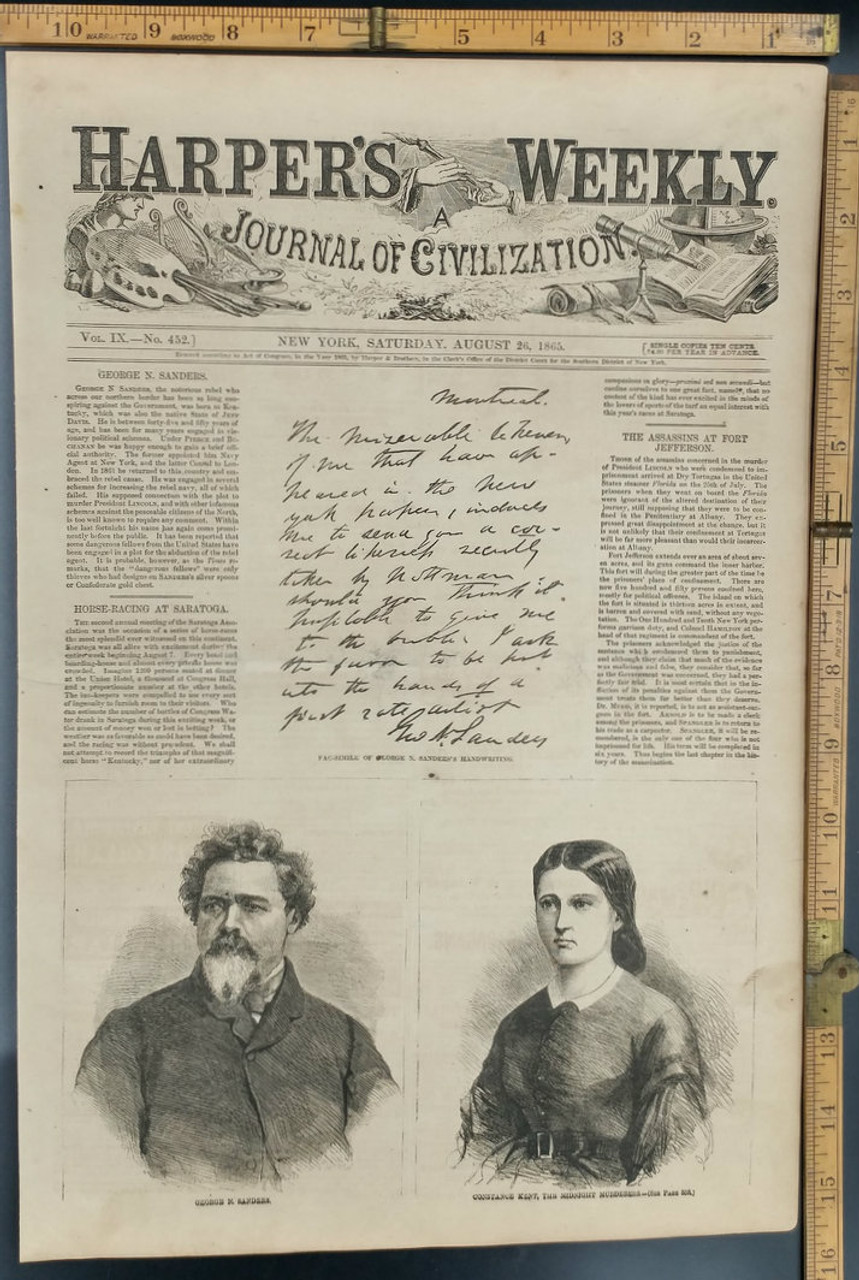 HARPER'S WEEKLY.
A
JOURNAL OF CIVILIZATION.
VOL. IX.—No. 452.]
NEW YORK, SATURDAY, AUGUST 26, 1865.
[SINGLE COPIES TEN CENTS.
$4.00 PER YEAR IN ADVANCE.
Entered according to Act of Congress, in the Year 1865, by Harper & Brothers, in the Clerk's Office of the District Court for the Southern District of New York.
GEORGE N. SANDERS.
GEORGE N SANDERS, the notorious rebel who
across our northern border has been so long con-
spiring against the Government, was born in Ken-
tucky, which was also the native State of JEFF
DAVIS. He is between forty-five and fifty years of
age, and has been for many years engaged in vis-
ionary political schemes. Under PIERCE and BU-
CHANAN he was happy enough to gain a brief offi-
cial authority. The former appointed him Navy
Agent at New York, and the latter Consul to Lon-
don. In 1861 he returned to this country and em-
braced the rebel cause. He was engaged in several
schemes for increasing the rebel navy, all of which
failed. His supposed connection with the plot to
murder President LINCOLN, and with other infamous
schemes against the peaceable citizens of the North,
is too well known to require any comment. Within
the last fortnight his name has again come promi-
nently before the public. It has been reported that
some dangerous fellows from the United States have
been engaged in a plot for the abduction of the rebel
agent. It is probable, however, as the Times re-
marks, that the "dangerous fellows" were only
thieves who had designs on SANDERS's silver spoons
or Confederate gold chest.
HORSE-RACING AT SARATOGA.
THE second annual meeting of the Saratoga Asso-
ciation was the occasion of a series of horse-races
the most splendid ever witnessed on this continent.
Saratoga was all alive with excitement during the
entire week beginning August 7. Every hotel and
boarding-house and almost every private house was
crowded. Imagine 1200 persons seated at dinner
at the Union Hotel, a thousand at Congress Hall,
and a proportionate number at the other hotels.
The inn-keepers were compelled to use every sort
of ingenuity to furnish room to their visitors. Who
can estimate the number of bottles of Congress Wa-
ter drank in Saratoga during this exciting week, or
the amount of money won or lost in betting? The
weather was as favorable as could have been desired,
and the racing was without precedent. We shall
not attempt to record the triumphs of that magnifi-
cent horse "Kentucky," nor of her extraordinary
Montreal.
The miserable likeness
of me that have ap-
peared in the New
York papers, induces
me to send you a cor-
rect likeness recently
taken by Notman
should you think it
proper to give me
to the public I ask
the favor to be put
into the hands of a
first rate artist
Geo N. Sanders
FAC-SIMILE OF GEORGE N. SANDERS'S HANDWRITING.
companions in glory—proximi sed non secundi—but
confine ourselves to one great fact, namely, that no
contest of the kind has ever excited in the minds of
the lovers of sports of the turf an equal interest with
this year's races at Saratoga.
THE ASSASSINS AT FORT
JEFFERSON.
THOSE of the assassins concerned in the murder
of President LINCOLN who were condemned to im-
prisonment arrived at Dry Tortugas in the United
States steamer Florida on the 25th of July. The
prisoners when they went on board the Florida
were ignorant of the altered destination of their
journey, still supposing that they were to be con-
fined in the Penitentiary at Albany. They ex-
pressed great disappointment at the change, but it
is not unlikely that their confinement at Tortugas
will be far more pleasant than would their incarcer-
ation at Albany.
Fort Jefferson extends over an area of about sev-
en acres, and its guns command the inner harbor.
This fort will during the greater part of the time be
the prisoners' place of confinement. There are
now five hundred and fifty persons confined here,
mostly for political offenses. The island on which
the fort is situated is thirteen acres in extent, and
is barren and covered with sand, without any vege-
tation. The One Hundred and Tenth New York per-
forms garrison duty, and Colonel HAMILTON at the
head of that regiment is commandant of the fort.
The prisoners acknowledged the justice of the
sentence which condemned them to punishment,
and although they claim that much of the evidence
was malicious and false, they consider that, so far
as the Government was concerned, they had a per-
fectly fair trial. It is most certain that in the in-
fliction of its penalties against them the Govern-
ment treats them far better than they deserve.
Dr. MUDD, it is reported, is to act as assistant-sur-
geon in the fort. ARNOLD is to be made a clerk
among the prisoners, and SPANGLER is to return to
his trade as a carpenter. SPANGLER, it will be re-
membered, is the only one of the four who is not
imprisoned for life. His term will be completed in
six years. Thus begins the last chapter in the his-
tory of the assassination.
GEORGE N. SANDERS.
CONSTANCE KENT, THE MIDNIGHT MURDERESS.—[SEE PAGE 533.]
WARRANTED
BOXWOOD